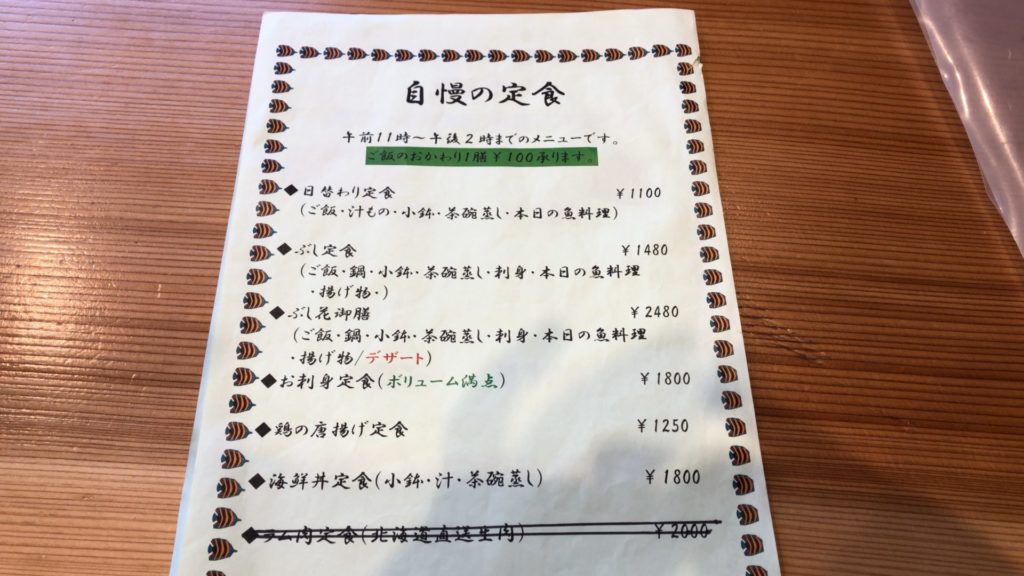 自慢の定食
午前11時～午後2時までのメニューです。
ご飯のおかわり1膳￥100承ります。
◆日替わり定食 ￥1100
(ご飯・汁もの・小鉢・茶碗蒸し・本日の魚料理)
◆ぶし定食 ￥1480
(ご飯・鍋・小鉢・茶碗蒸し・刺身・本日の魚料理
・揚げ物・)
◆ぶし花御膳 ￥2480
(ご飯・鍋・小鉢・茶碗蒸し・刺身・本日の魚料理
・揚げ物/デザート)
◆お刺身定食(ボリューム満点) ￥1800
◆鶏の唐揚げ定食 ￥1250
◆海鮮丼定食(小鉢・汁・茶碗蒸し) ￥1800
◆ラム肉定食(北海道直送生肉) ￥2000